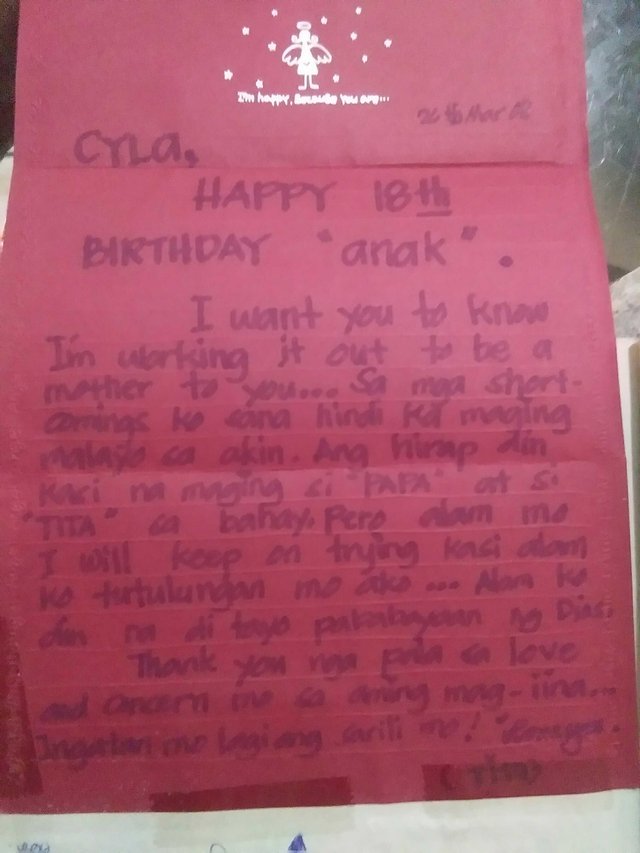 I'm happy, Because You are...
26th Mar 08
CYLa,
HAPPY 18th
BIRTHDAY "anak".
I want you to know
I'm working it out to be a
mother to you... Sa mga short-
comings ko sana hindi ka maging
malayo sa akin. Ang hirap din
kasi na maging si "PAPA" at si
"TITA" sa bahay. Pero alam mo
I will keep on trying kasi alam
ko tutulungan mo ako... Alam ko
din na di tayo pababayaan ng Dios.
Thank you nga pala sa love
and concern mo sa aming mag-iina...
Ingatan mo lagi ang sarili mo!